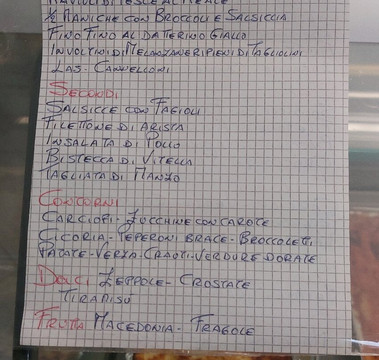 RAVIOLI DI PESCE AL
½ MANICHE CON BROCCOLI E SALSICCIA
FINO FINO AL DATTERINO GIALLO
INVOLTINI DI MELANZANE RIPIENI DI TAGLIOLINI
LAS- CANNELLONI
SECONDI
SALSICCE CON FAGIOLI
FILETTONE DI ARISTA
INSALATA DI POLLO
BISTECCA DI VITELLA
TAGLIATA DI MANZO
CONTORNI
CARCIOFI- ZUCCHINE CON CAROTE
CICORIA- PEPERONI BRACE- BROCCOLETTI
PATATE- VERZA- CRAUTI- VERDURE DORATE
DOLCI ZEPPOLE- CROSTATE
TIRAMISÙ
FRUTTA MACEDONIA- FRAGOLE